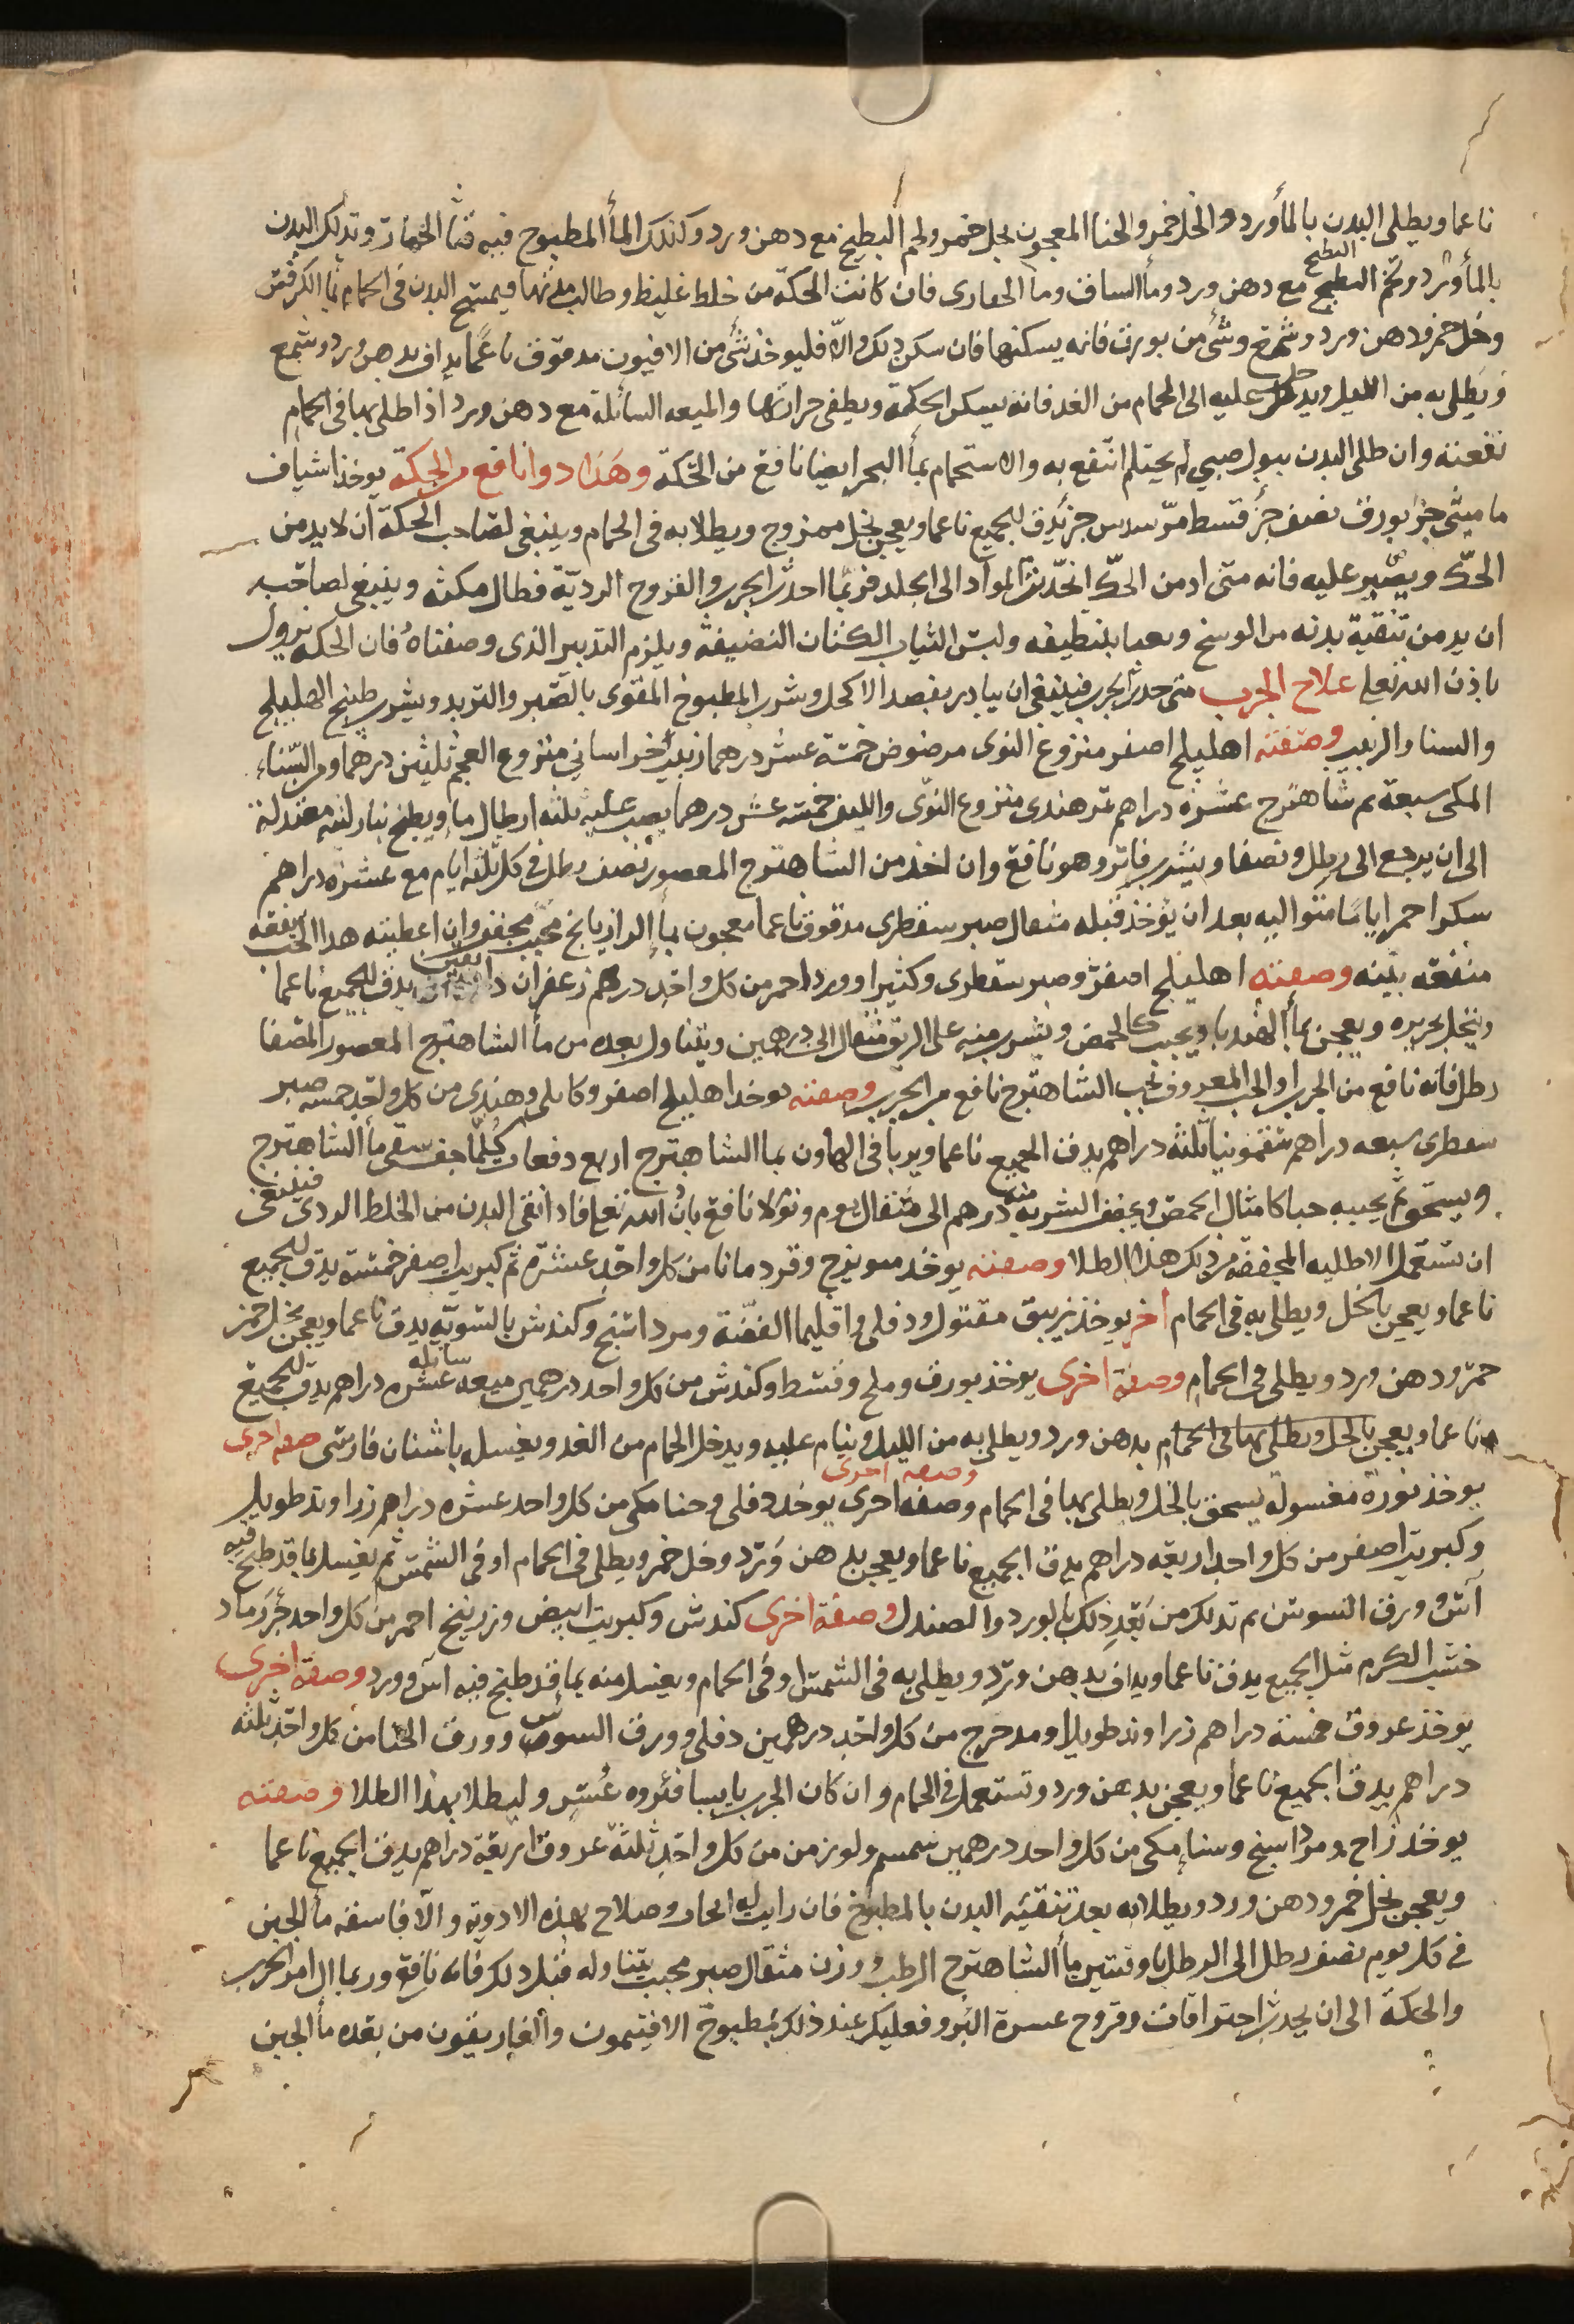 ناعما ويطلى البدن بالمأورد والخل خمر والحنا المعجون بخل خمر ولحم البطيخ مع دهن ورد وكذلك المأ المطبوخ فيه قثا الحمار وتدلك البدن
بالمأورد ولحم البطيخ البطيخ مع دهن ورد ومأ الساق وما الحصارى فان كانت الحكة من خلط غليظ وطالب مدتها فيمسح البدن فى الحمام بمأ الكرفس
وخل خمر ودهن ورد وشمع وشئ من بورق فانه يسكنها فان سكن ذلك والا فليوخذ شئ من الافيون مدقوق ناعما يداف بدهن ورد وشمع
ويطلى به من الليل ويدخل عليه الى الحمام من الغد فانه يسكن الحكة ويطفى حرارتها والميعه السائلة مع دهن ورد اذا طلى بها فى الحمام
نفعته وان طلى البدن ببول صبي لم يحتلم انتفع به والاستحمام بمأ البحر ايضا نافع من الحكة وهذا دوا نافع من الحكة يوخذ اشياف
ماميثى جز بورق نصف جز قسط مر سدس جز يدق الجميع ناعما ويعجن بخل ممزوج ويطلا به فى الحمام وينبغى لصاحب الحكة ان لا يدمن
الحك ويصبر عليه فانه متى ادمن الحك انحدرت المواد الى الجلد فربما احدث الجرب والقروح الردية فطال مكثه وينبغى لصاحبه
ان يدمن تنقية بدنه من الوسخ ويعنا بتنظيفه ولبس الثياب الكتان النضيفة ويلزم التدبير الذى وصفناه فان الحكه تزول
باذن الله تعلى علاج الجرب متى حدث الجرب فينبغى ان يبادر بفصد الاكحل وشرب المطبوخ المقوى بالصبر والتربد ويشرب طبيخ الهليلج
والسنا والزبيب وصفته اهليلج اصفر منزوع النوى مرضوض خمسة عشر درهما زبيب خراسانى منزوع العجم ثلثين درهما ومن السناء
المكى سبعة دراهم شاهترج عشرة دراهم تمر هندى منزوع النوى والليف خمسة عشر درهما يصب عليه ثلثه ارطال ما ويطبخ بنار لينه معتدلة
الى ان يرجع الى رطل ونصفا ويشرب فاتر وهو نافع وان اخذ من الشاهترج المعصور نصف رطل فى كل ثلثة ايام مع عشرة دراهم
سكر احمر اياما متواليه بعد ان يؤخذ قبله مثقال صبر سقطرى مدقوق ناعما معجون بمأ الرازيانج محبب مجفف وان اعطيته هذا الحب نفعه
منفعه بينه وصفته اهليلج اصفر وصبر سقطرى وكثيرا وورد احمر من كل واحد درهم زعفران دانقين يدق الجميع ناعما
وينخل بحريره ويعجن بمأ الهندبا ويحبب كالحمص ويشرب منه على الريق مثقال الى درهمين ويتناول بعده من مأ الشاهترج المعصور المصفا
رطل فانه نافع من الجرب والحب المعروف بحب الشاهترج نافع من الجرب وصفته يوخذ اهليلج اصفر وكابلى وهندى من كل واحد خمسه صبر
سقطرى سبعه دراهم سقمونيا ثلثة دراهم يدق الجميع ناعما ويربا فى الهاون بما الشاهترج اربع دفعات كلما جف سقى مأ الشاهترج
ويسحق ثم يحببه حبا كامثال الحمص ويجفف الشربه منه درهم الى مثقال يوم ويوم لا نافع باذن الله تعلى فاذا نقى البدن من الخلط الردى فينبغى
ان تستعمل الاطليه المجففه من ذلك هذا الطلا وصفته يوخذ ميويزج وقردمانا من كل واحد عشرة كبريت اصفر خمسة يدق الجميع
ناعما ويعجن بالخل ويطلى به فى الحمام اخر يوخذ زيبق مقتول ودفلى واقليميا الفضة ومرداسنج وكندش بالسويه يدق ناعما ويعجن بخل خمر
خمر ودهن ورد ويطلى فى الحمام وصفة اخرى يوخذ بورق وملح وقسط وكندش من كل واحد درهمين ميعه سايله عشره دراهم يدق الجميع
ناعما ويعجن بالخل ويطلى بها فى الحمام بدهن ورد ويطلى به من الليل وينام عليه ويدخل الحمام من الغد ويغسل باشنان فارسى صفه اخرى
يوخذ نورة مغسولة يسحق بالخل ويطلى بها فى الحمام وصفه اخرى وصفه اخرى يوخذ دفلى وحنا مكى من كل واحد عشره دراهم زراوند طويل
وكبريت اصفر من كل واحد اربعه دراهم يدق الجميع ناعما ويعجن بدهن ورد وخل خمر ويطلى فى الحمام او فى الشمس ثم يغسل بما قد طبخ فيه
آس وورق السوسن ثم تدلك من بعد ذلك بالورد والصندل وصفة اخرى كندش وكبريت ابيض وزرنيخ احمر من كل واحد جز رماد
خشب الكرم مثل الجميع يدق ناعما ويداف بدهن ورد ويطلى به فى الشمس او فى الحمام ويغسل منه بما قد طبخ فيه آس وورد وصفة اخرى
يوخذ عروق خمسة دراهم زراوند طويل او مدحرج من كل واحد درهمين دفلى وورق السوسن وورق الحنا من كل واحد ثلثه
دراهم يدق الجميع ناعما ويعجن بدهن ورد وتستعمل فى الحمام وان كان الجرب يابسا فليطلا بهذا الطلا وصفته
يوخذ زاج ومرداسنج وسنا مكى من كل واحد درهمين سمسم ولوز من كل واحد ثلثة عروق اربعة دراهم يدق الجميع ناعما
ويعجن بخل خمر ودهن ورد ويطلا به بعد تنقيه البدن بالمطبوخ فان رايت له انجاب وصلاح بهذه الادوية والا فاسقه مأ الجبن
فى كل يوم نصف رطل الى الرطل باوقيتين مأ الشاهترج الرطب ووزن مثقال صبر محبب يتناوله قبل ذلك فانه نافع وربما ال امر الجرب
والحكة الى ان يحدث احتراقات وقروح عسرة البرو فعليك عند ذلك بمطبوخ الافتيمون والغاريقون من بعده مأ الجبن